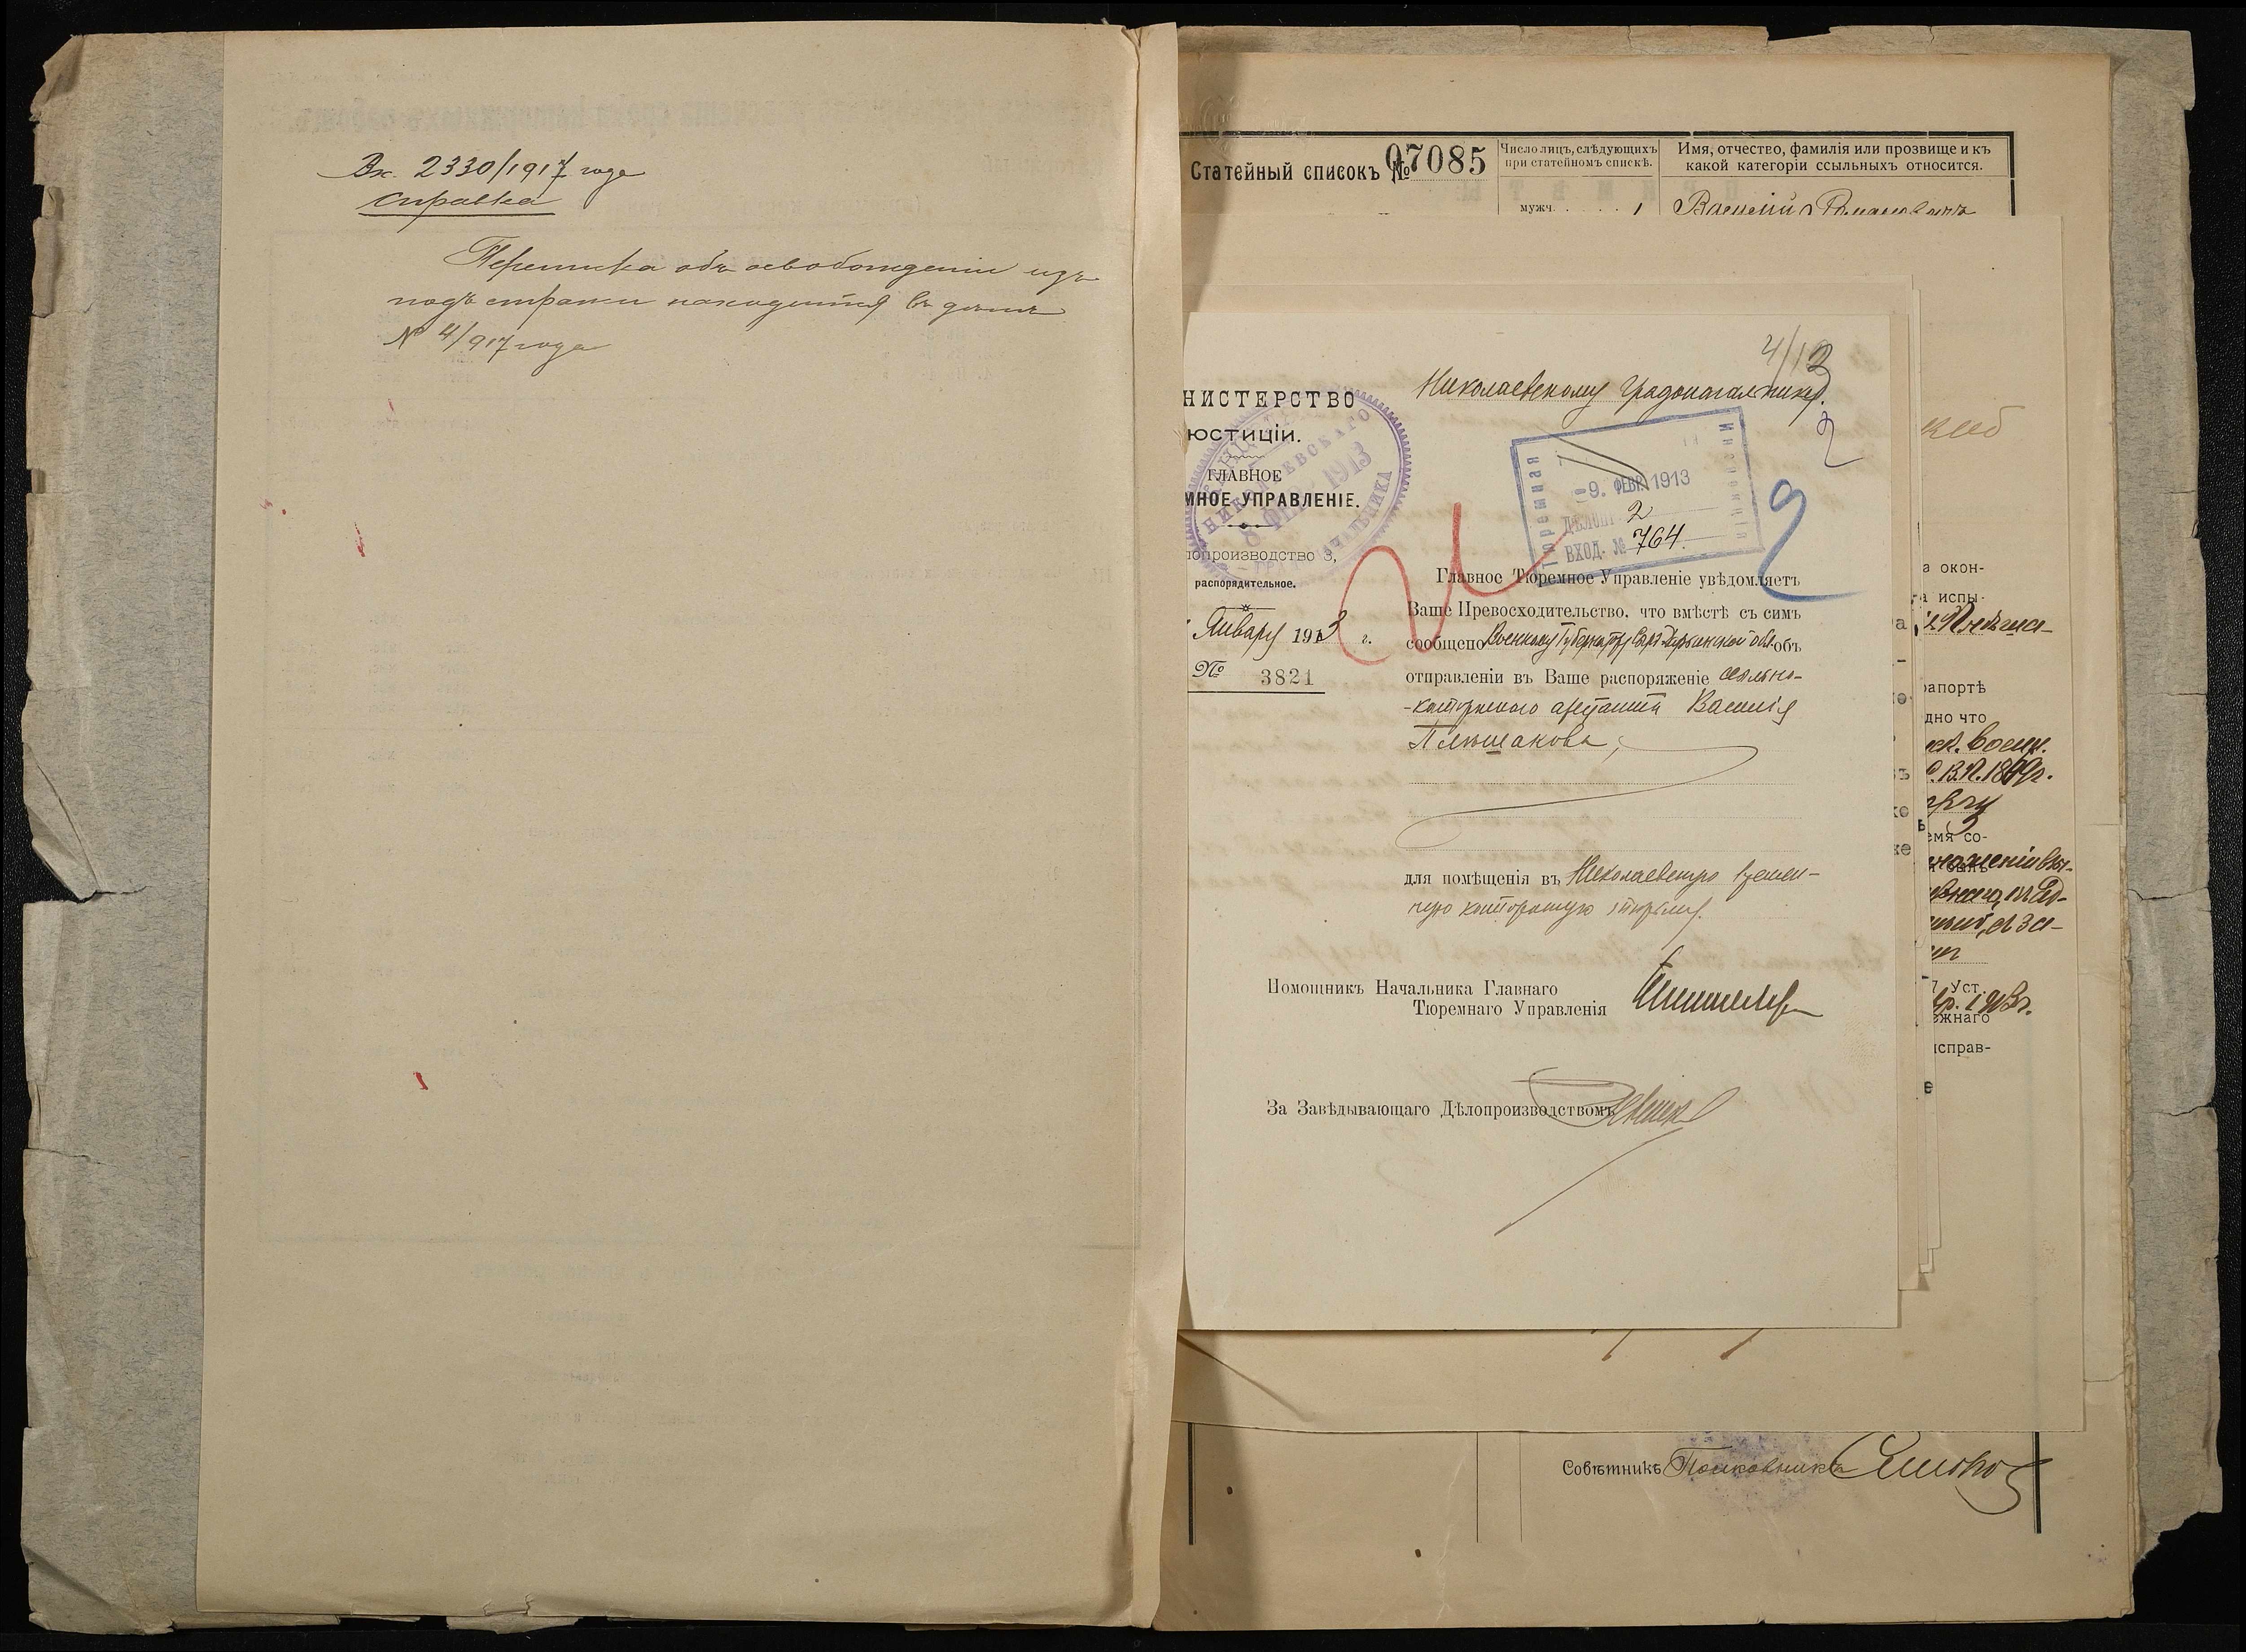 Вх. 2330/1917 года
справка
Переписка объ освобожденіи изъ
подъ стражи находится въ дѣлѣ
№ 4/917 года
Статейный списокъ № 07085
Число лицъ, слѣдующихъ
при статейномъ спискѣ.
мужч. . . . . . 1
Имя, отчество, фамилія или прозвище и къ
какой категоріи ссыльныхъ относится.
Василій Романовъ
4/13
Николаевскому Градоначальнику.
НИСТЕРСТВО
ЮСТИЦІИ.
ГЛАВНОЕ
МНОЕ УПРАВЛЕНІЕ.
лопроизводство 3,
распорядительное.
Января 1913 г.
№ 3821
НИКОЛАЕВСКАГО
8 ФЕВ. 1913
Тюремная Инспекція
9. ФЕВР. 1913
ДѢЛОПР. 2
ВХОД. № 764.
2
Главное Тюремное Управленіе увѣдомляетъ
Ваше Превосходительство, что вмѣстѣ съ симъ
сообщено Военному Губернатору Сыръ-Дарьинской обл. объ
отправленіи въ Ваше распоряженіе ссыльно-
-каторжнаго арестанта Василія
Плѣшакова,
для помѣщенія въ Николаевскую времен-
ную каторжную тюрьму.
Помощникъ Начальника Главнаго
Тюремнаго Управленія
За Завѣдывающаго Дѣлопроизводствомъ
а окон-
а испы-
апортѣ
дно что
В.П. 1869г.
емя со-
7 Уст.
1913г.
ежнаго
исправ-
Совѣтникъ Полковникъ